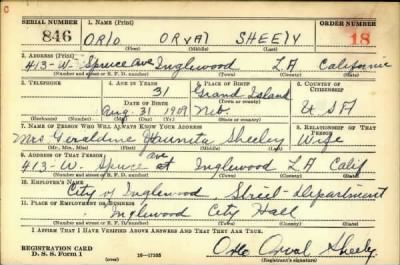 SERIAL NUMBER 1. NAME (Print) ORDER NUMBER
846 ORLO ORVAL SHEELY 18
(First) (Middle) (Last)
2. ADDRESS (Print)
413-W- Spruce Ave Inglewood LA California
(Number and street or R. F. D. number) (Town) (County) (State)
3. TELEPHONE 4. AGE IN YEARS 5. PLACE OF BIRTH 6. COUNTRY OF CITIZENSHIP
31 Grand Island
DATE OF BIRTH (Town or county)
Aug- 31 1909 Neb. USA
(Exchange) (Number) (Mo.) (Day) (Yr.) (State or country)
7. NAME OF PERSON WHO WILL ALWAYS KNOW YOUR ADDRESS 8. RELATIONSHIP OF THAT PERSON
Mrs Geraldine Sheely Wife
(Mr., Mrs., Miss) (First) (Middle) (Last)
9. ADDRESS OF THAT PERSON
ave
413-W- Spruce Inglewood LA Calif
(Number and street or R. F. D. number) (Town) (County) (State)
10. EMPLOYER'S NAME
City of Inglewood Street-Department
11. PLACE OF EMPLOYMENT OR BUSINESS
Inglewood City Hall
(Number and street or R. F. D. number) (Town) (County) (State)
I AFFIRM THAT I HAVE VERIFIED ABOVE ANSWERS AND THAT THEY ARE TRUE.
REGISTRATION CARD
D. S. S. Form 1 16—17105 Orlo Orval Sheely
(Registrant's signature)